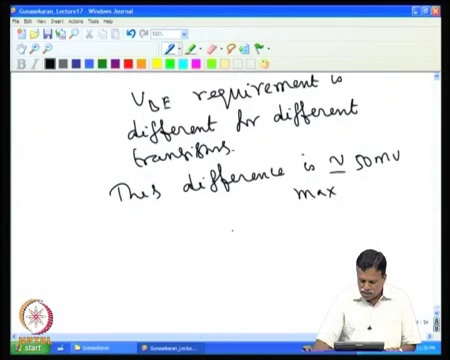 Gunasekaran_Lecture17 - Windows Journal
File Edit View Insert Actions Tools Help
100%
B I
VBE requirement is
different for different
transistors.
This difference is ≃ 50mV
max
NPTEL
start Gunasekaran Gunasekaran_Lectu...